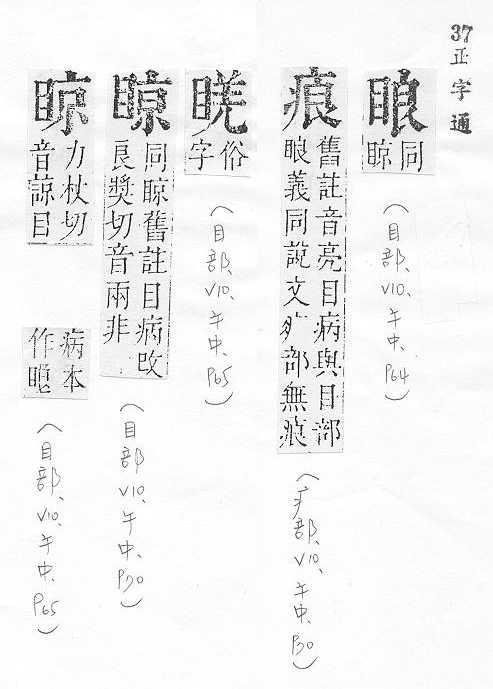 37 正字通
䀶
同
䁁
(目部、V10、午中、P64)
㾗
舊註音亮目病與目部
䀶義同說文疒部無㾗
(疒部、V10、午中、P30)
俗
字
(目部、V10、午中、P65)
同䁁舊註目病改
良獎切音兩非
(目部、V10、午中、P70)
䁁
力杖切
音諒目
病本
作
(目部、V10、午中、P65)